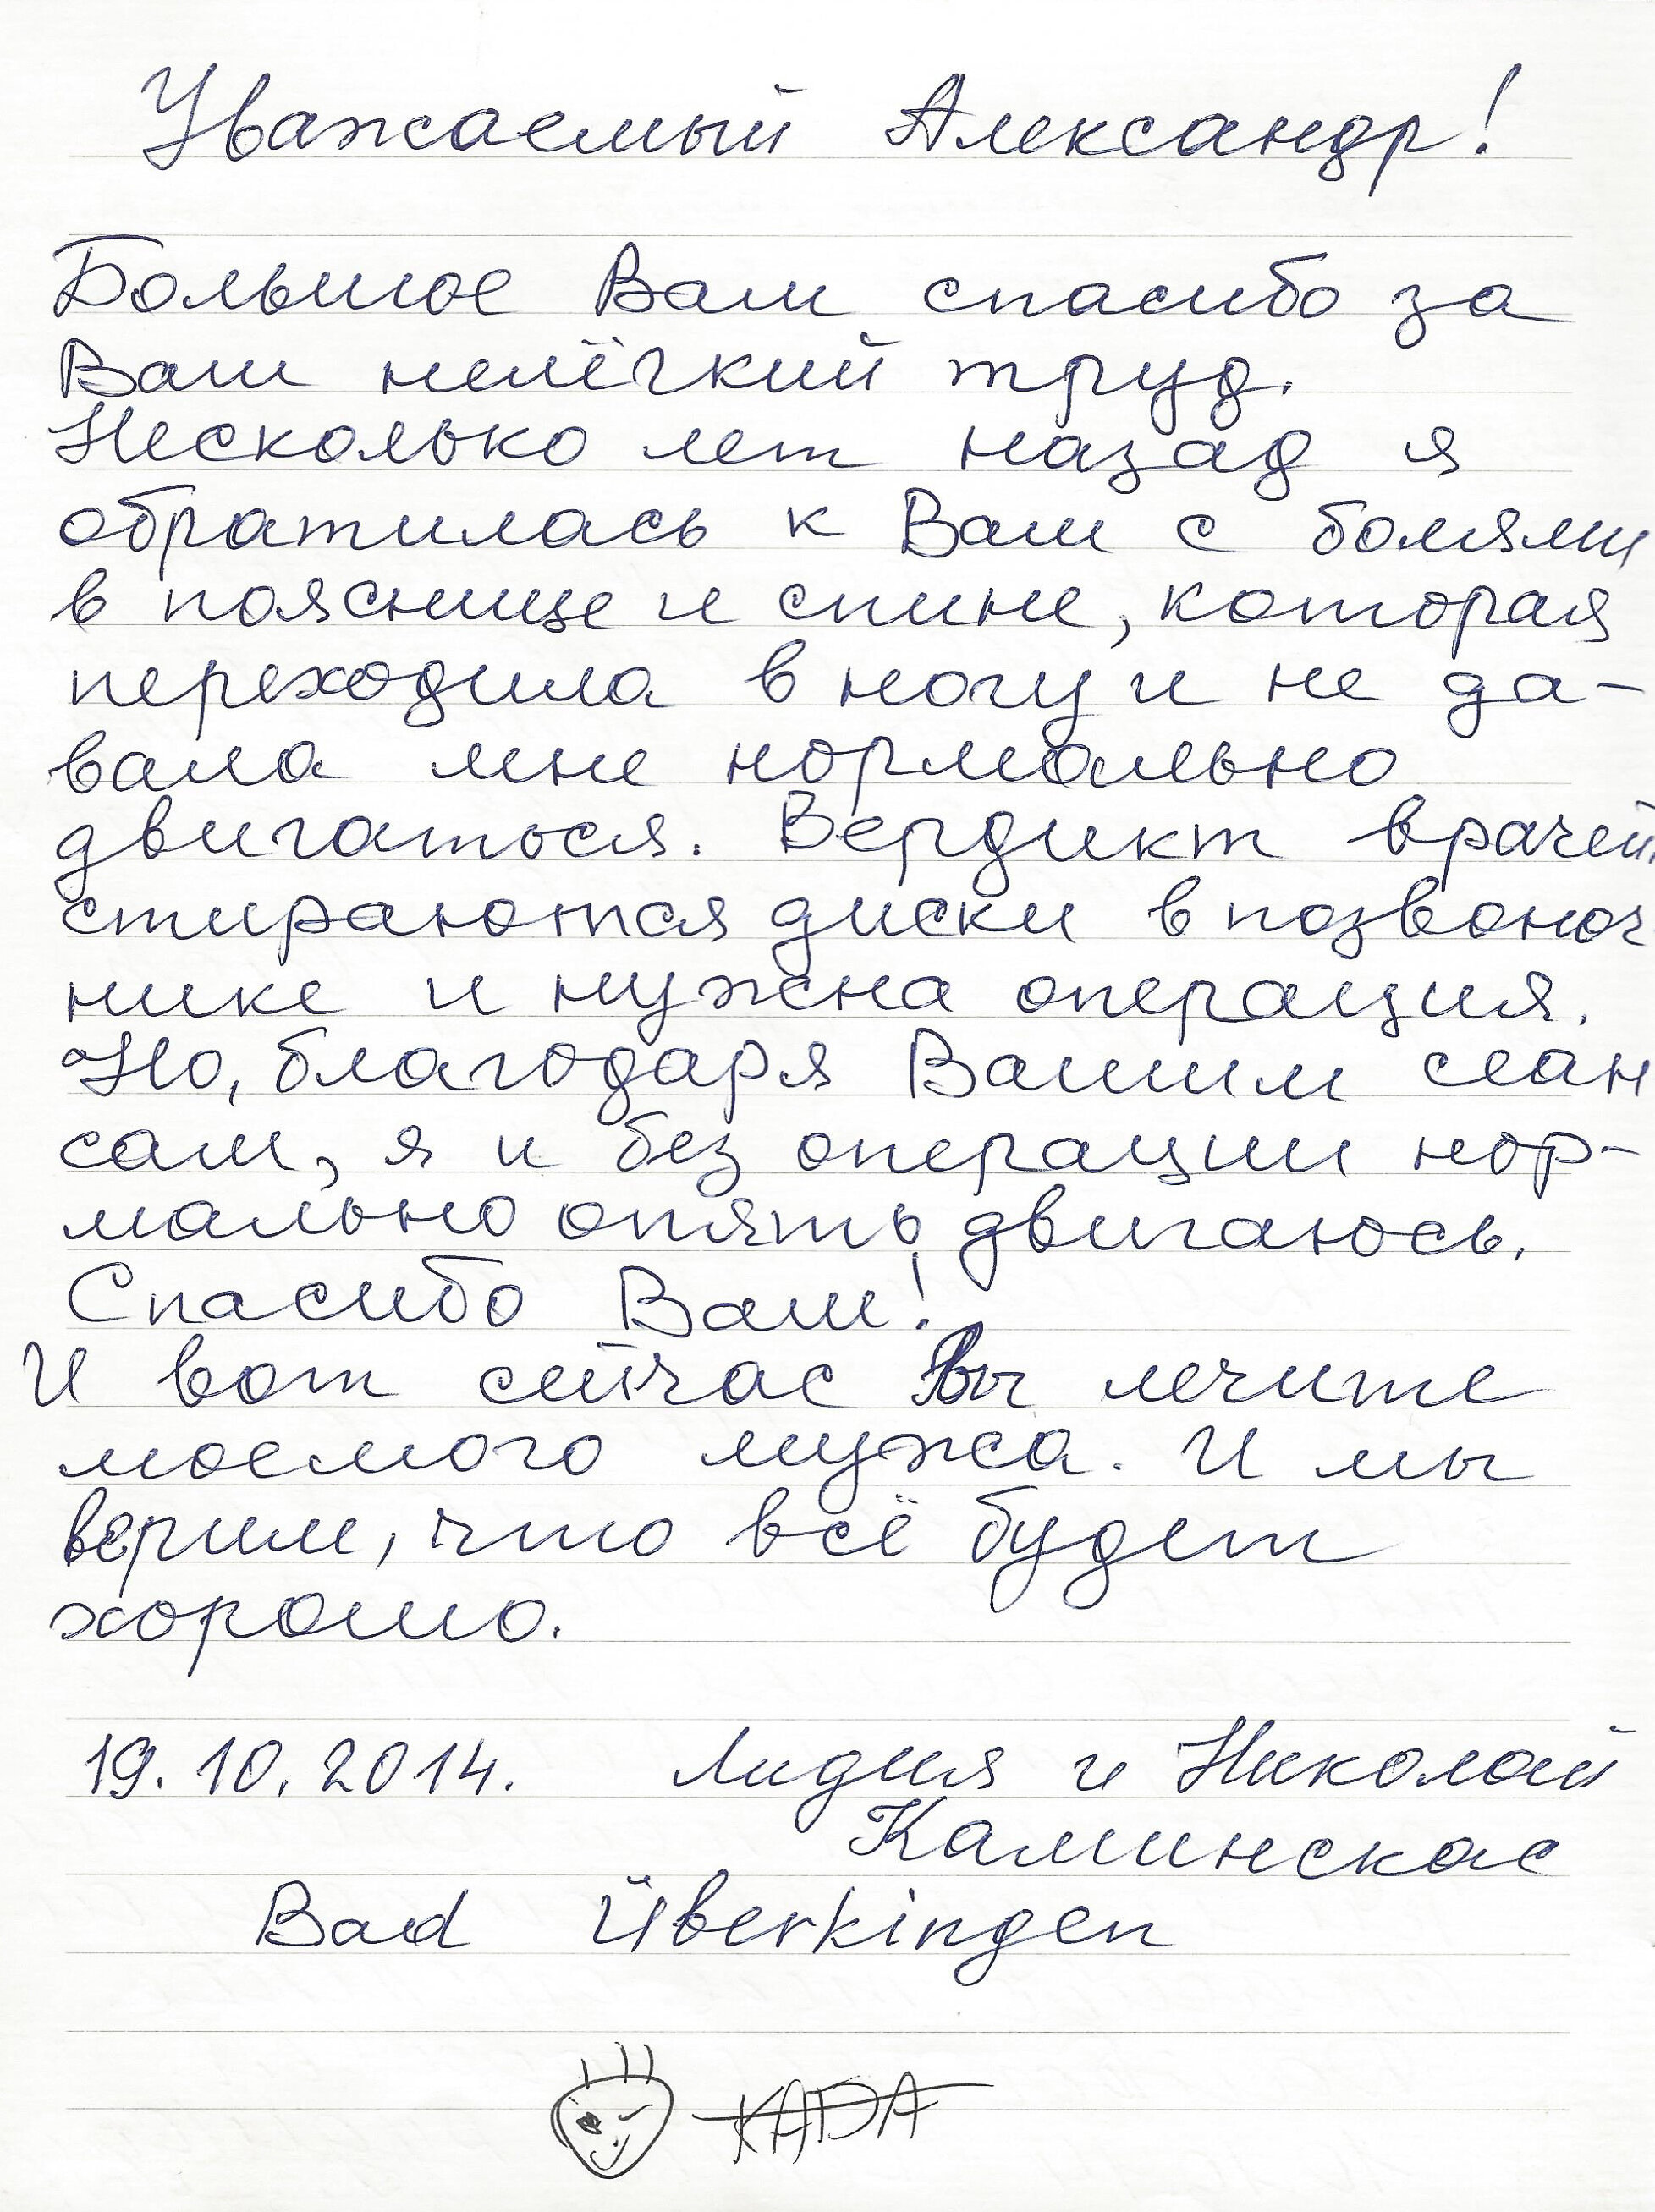 Уважаемый Александр!
Большое Вам спасибо за
Ваш нелёгкий труд.
Несколько лет назад я
обратилась к Вам с болями
в пояснице и спине, которая
переходила в ногу и не да-
вала мне нормально
двигаться. Вердикт врачей:
стираются диски в позвоноч
нике и нужна операция.
Но, благодаря Вашим сеан
сам, я и без операции нор-
мально опять двигаюсь.
Спасибо Вам!
И вот сейчас Вы лечите
моемого мужа. И мы
верим, что всё будет
хорошо.
19.10.2014. Лидия и Николай
Каминскас
Bad Überkingen